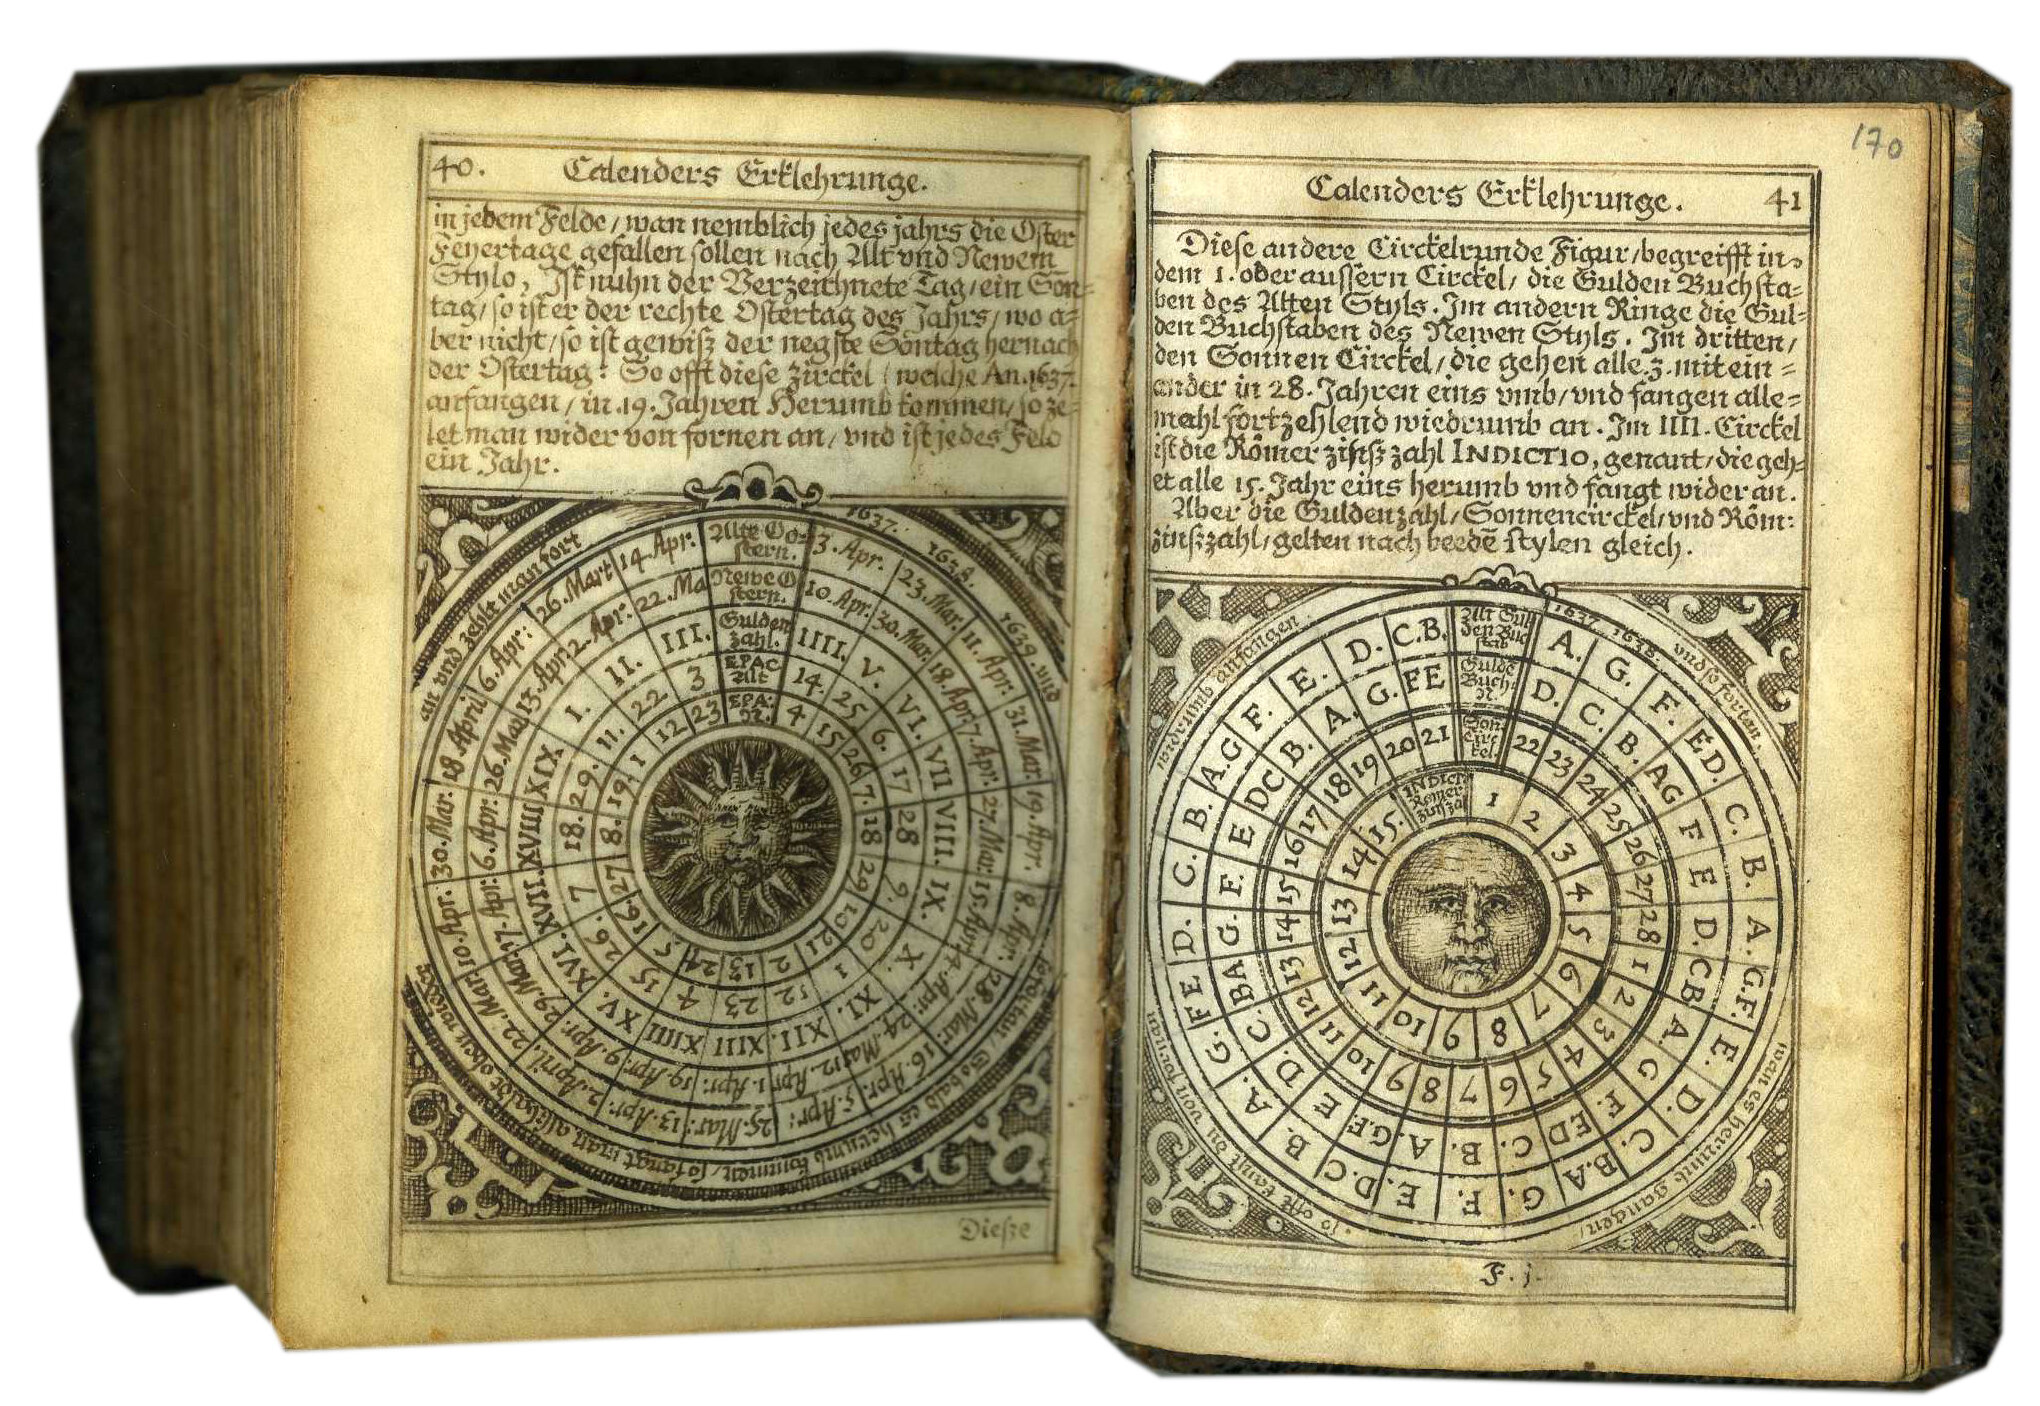 40. Calenders Erklehrunge.
in jedem Felde / wan nemblich jedes jahrs die Oster
Feyertage gefallen sollen nach Alt vnd Newem
Stylo, Ist nuhn der Verzeichnete Tag / ein Son-
tag / so ist er der rechte Ostertag des Jahrs / wo a-
ber nicht / so ist gewiß der negste Sontag hernach
der Ostertag: So offt diese zirckel / welche An. 1637.
anfangen / in .19. Jahren Herumb kommen / so ze-
let man wider von fornen an / vnd ist jedes Feld
ein Jahr.
1637. 1638. 1639. vnd so fortan, so bald es herumb kommen, so fangt man alle baldt oben wieder an vnd zehlt man fort
Alte Oo-
stern.
3. Apr. 23. Mar. 11. Apr. 31. Mar. 19. Apr. 8. Apr. 28. Mar. 16. Apr. 5. Apr: 25. Mar: 13. Apr: 2. April. 22. Mar: 10. Apr. 30. Mar. 18. April 6. Apr: 26. Mart 14. Apr.
Newe O
stern.
10. Apr. 30. Mar. 18. Apr. 7. Apr. 27. Mar: 15. Apr. 4. Apr: 24. Mar: 12. Apr. 1. Apr: 19. Apr: 9. Apr: 29. Mar: 17. Apr: 6. Apr: 26. Mar. 13. Apr: 2. Apr: 22. Ma
Gulden
zahl.
IIII. V. VI. VII VIII. IX. X. XI. XII. XIII XIIII XV. XVI. XVII. XVIII XIX. I. II. III.
EPAC
Alt
14. 25 6. 17 28 9. 20 1 12 23 4 15 26. 7 18. 29. 11. 22 3
EPA:
N.
4 15 26 7. 18 29 10 21 2 13 24 5. 16. 27 8. 19. 1 12 23
Dieße
170
Calenders Erklehrunge. 41
Diese andere Circkelrunde Figur / begreifft in-
dem 1. oder aussern Circkel / die Gulden Buchsta-
ben des Alten Styls. Im andern Ringe die Gul-
den Buchstaben des Newen Styls. Im dritten /
den Sonnen Circkel / die gehen alle .3. mit ein-
ander in 28. Jahren eins vmb / vnd fangen alle-
mahl fortzehlend wiedrumb an. Im IIII. Circkel
ist die Römer zinßzahl INDICTIO, genant / die geh-
et alle 15. Jahr eins herumb vnd fangt wider an.
Aber die Guldenzahl / Sonnencirckel / vnd Röm:
zinßzahl / gelten nach beedē stylen gleich.
1637. 1638. vnd so fortan. wan es herumb gangen / so offt kanst du von fornan widrumb anfangen.
Alt Gul
den Buc
stab
A. G. F. ED. C. B. A. G.F. E. D. C. B.A G. F. E. D.C B. A. G. FE D. C. B. A.G F. E. D. C.B.
Gulde
Buch:
N.
D. C. B. AG F E D. CB A. G F. ED C. B. A. G.F E D. C. BA G. F. E DC B. A. G. FE
Son
Circ
kel.
22 23 24 25 26 27 28 1 2 3 4 5 6 7 8 9 10 11 12 13 14 15 16 17 18 19 20 21
INDICT
Römer
zinßza
1 2 3 4 5 6 7 8 9 10 11 12 13 14 15.
F. j.